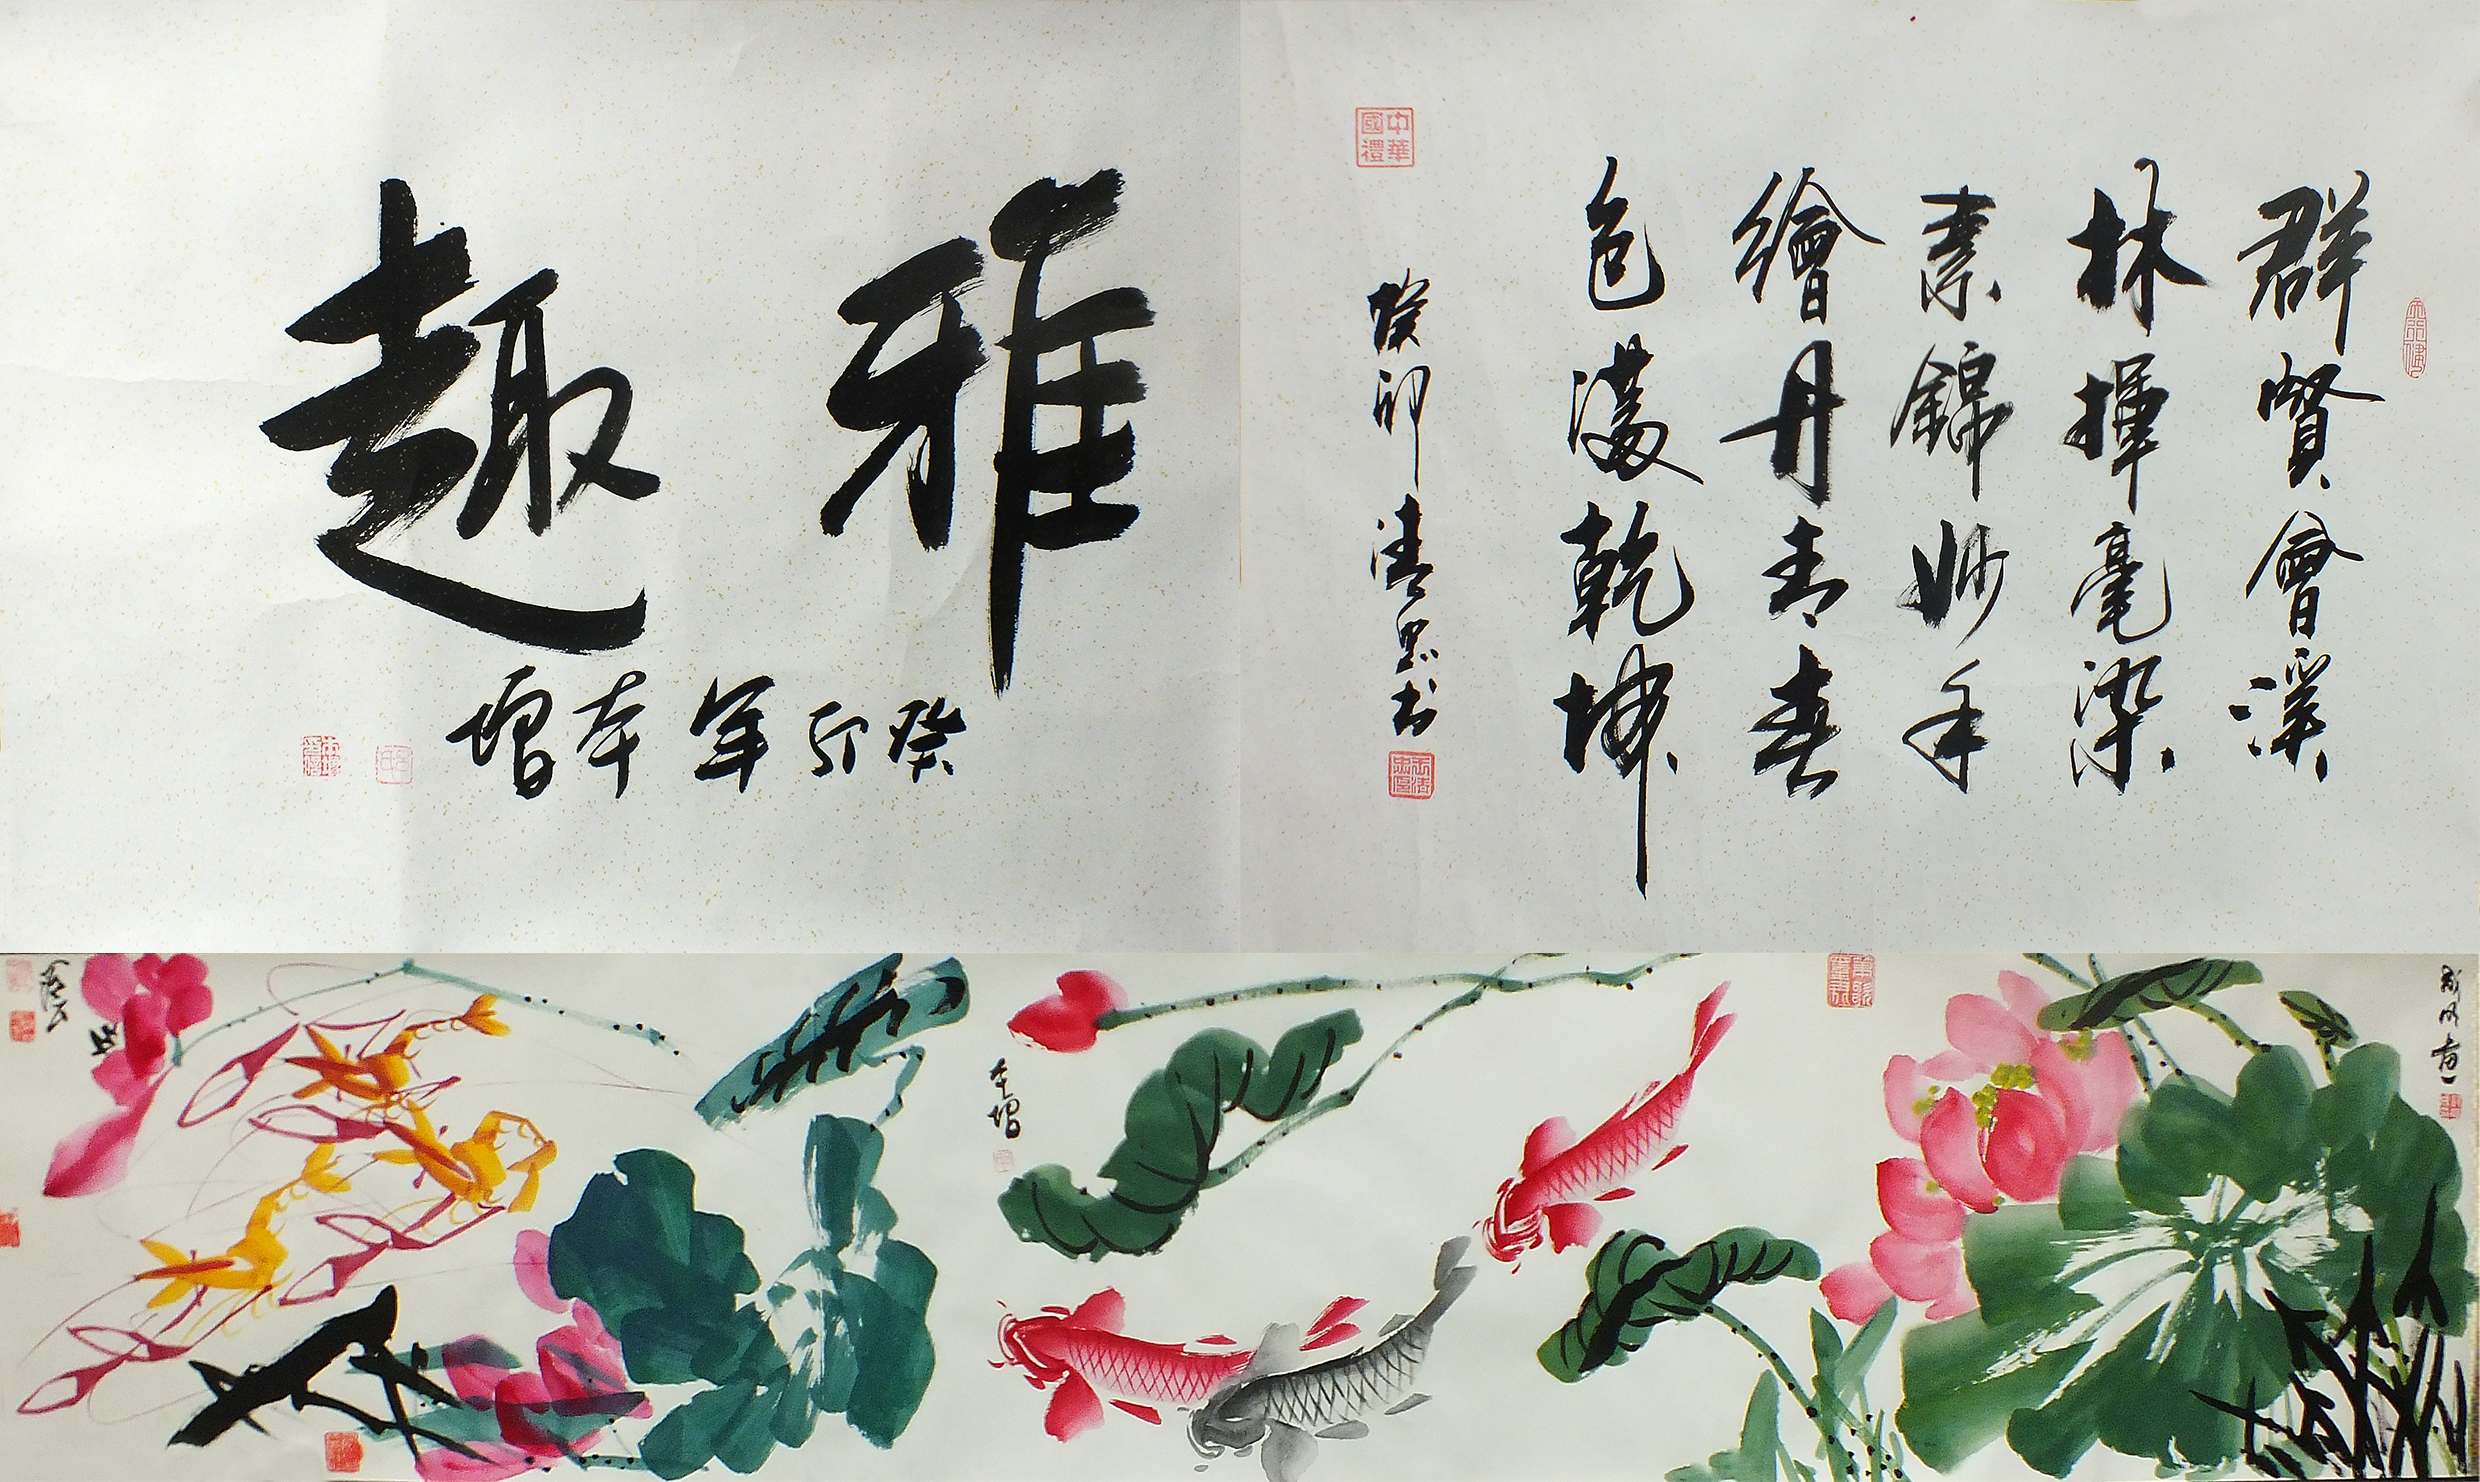 雅趣
癸卯年本增
群賢會溪
林揮毫染
素錦妙手
繪丹青春
色滿乾坤
癸卯清思书
中華國禮
本增